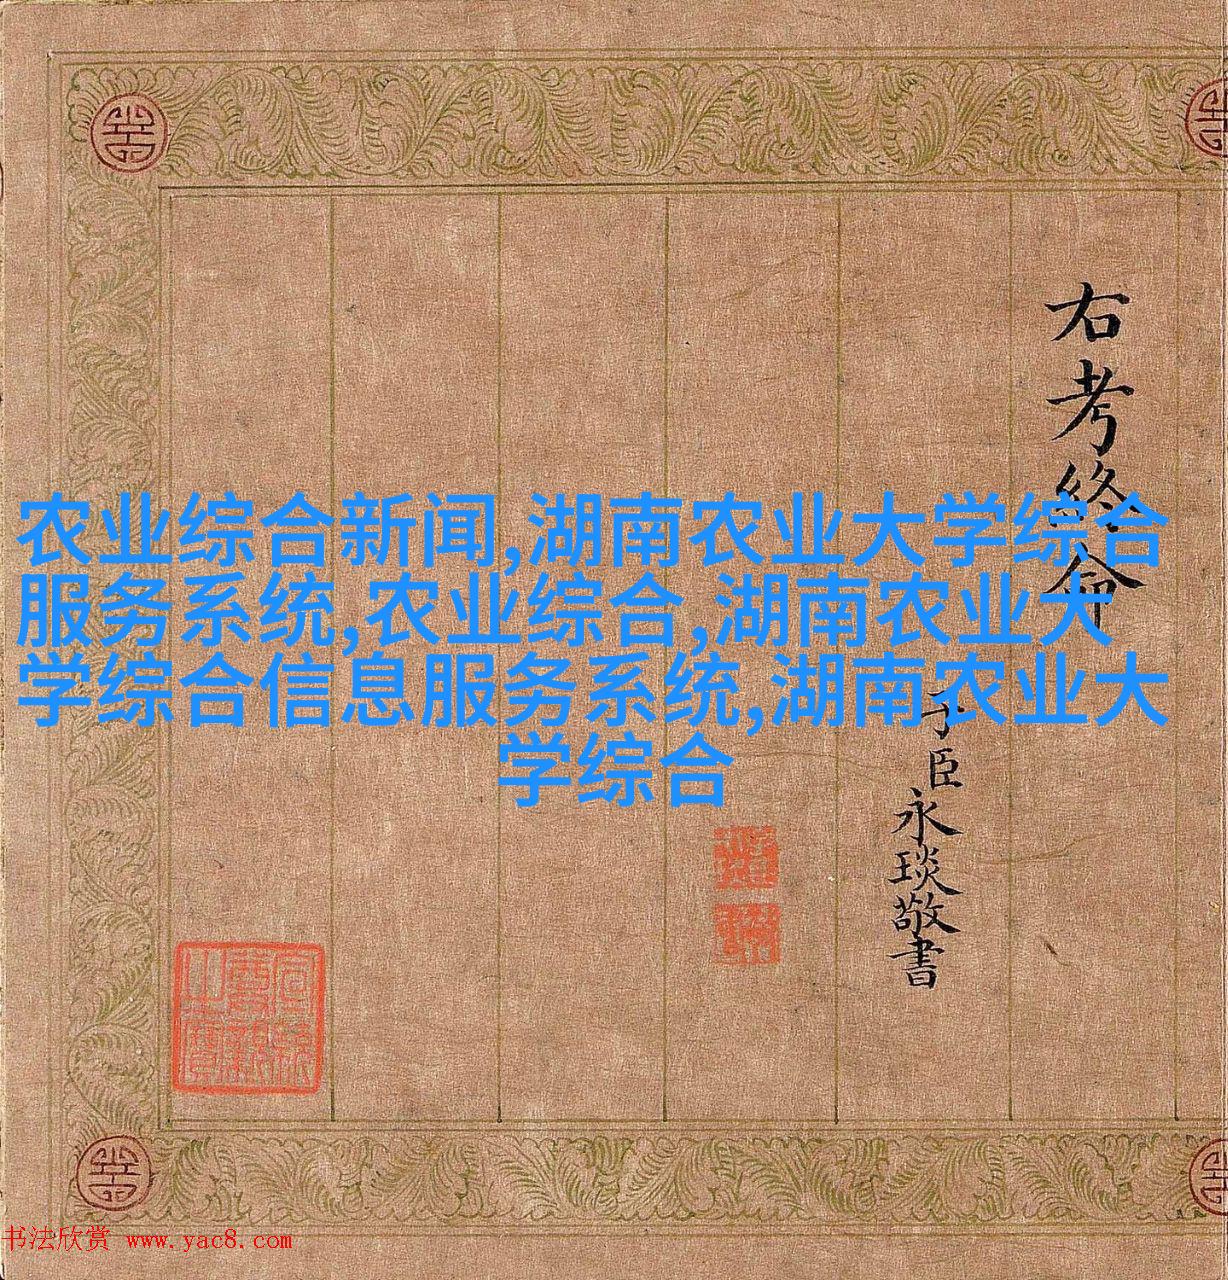 农业综合新闻,湖南农业大学综合
服务系统,农业综合,湖南农业大
学综合信息服务系统,湖南农业大
学综合
右考終命
子臣永琰敬書
书法欣赏 www.yac8.com